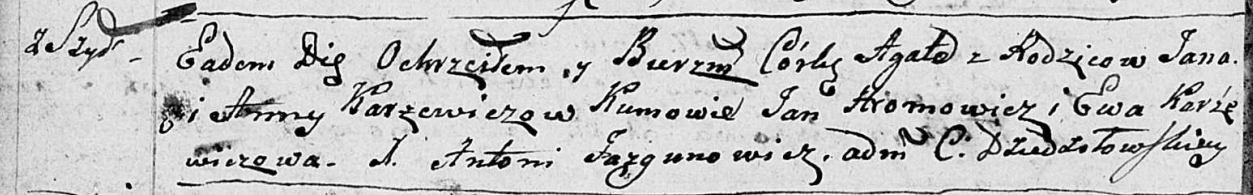 z Szyd
Eadem Die Ochrzciłem y Bierzm Córkę Agatę z Rodziców Jana
i Anny Karżewiczow Kumowie Jan Hromowicz i Ewa Karże
wiczowa. X. Antoni Jazgunowicz. adm C. Dziedziołowskiey